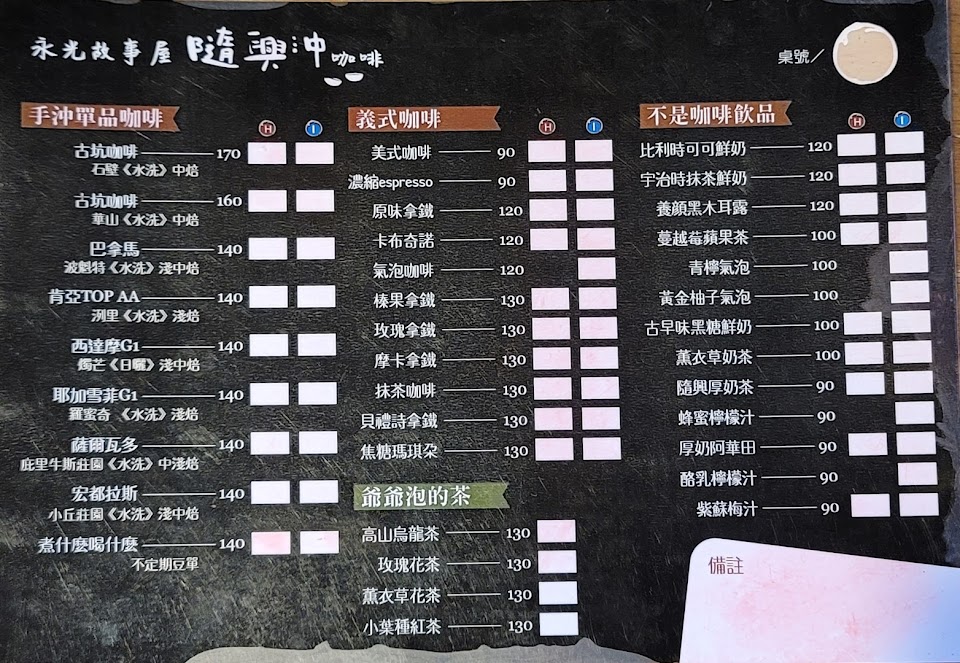 永光故事屋 隨興沖咖啡
桌號／
手沖單品咖啡 H I
古坑咖啡 170
石壁《水洗》中焙
古坑咖啡 160
華山《水洗》中焙
巴拿馬 140
波魁特《水洗》淺中焙
肯亞TOP AA 140
洌里《水洗》淺焙
西達摩G1 140
燭芒《日曬》淺中焙
耶加雪菲G1 140
羅蜜奇《水洗》淺焙
薩爾瓦多 140
庇里牛斯莊園《水洗》中淺焙
宏都拉斯 140
小丘莊園《水洗》淺中焙
煮什麼喝什麼 140
不定期豆單
義式咖啡 H I
美式咖啡 90
濃縮espresso 90
原味拿鐵 120
卡布奇諾 120
氣泡咖啡 120
榛果拿鐵 130
玫瑰拿鐵 130
摩卡拿鐵 130
抹茶咖啡 130
貝禮詩拿鐵 130
焦糖瑪琪朵 130
爺爺泡的茶
高山烏龍茶 130
玫瑰花茶 130
薰衣草花茶 130
小葉種紅茶 130
不是咖啡飲品 H I
比利時可可鮮奶 120
宇治時抹茶鮮奶 120
養顏黑木耳露 120
蔓越莓蘋果茶 100
青檸氣泡 100
黃金柚子氣泡 100
古早味黑糖鮮奶 100
薰衣草奶茶 100
隨興厚奶茶 90
蜂蜜檸檬汁 90
厚奶阿華田 90
酪乳檸檬汁 90
紫蘇梅汁 90
備註